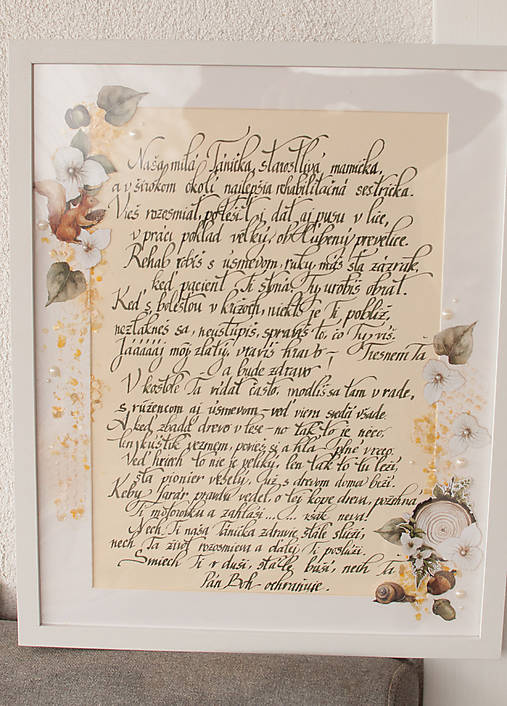 Naša milá Tánička, starostlivá mamička,
a v širokom okolí najlepšia rehabilitačná sestrička.
Vieš rozosmiať, potešiť i dať aj pusu v líce,
v práci poklad veľký, obľúbený prevelice.
Rehab robíš s úsmevom, ruky máš sťa zázrak,
keď pacient Ti stoná, Ty urobíš obrat.
Keď s bolesťou v krížoch, niekto je Ti poblíž,
nezľakneš sa, neustúpiš, spravíš to, čo Ty víš.
Jáááááj môj zlatý, vravíš hravo – Tresnem Ťa
– a bude zdravo
V kostole Ťa vídať často, modlíš sa tam v rade,
s ružencom aj úsmevom – veď vieru svedčí všade.
A keď zbadáš drevo v lese – no tak to je niečo,
len kúštik vezmem, povieš si a hľa – plné vreco.
Veď hriech to nie je veľký, len tak to tu leží,
sťa pionier veselý, už s drevom domov beží.
Keby farár pravdu vedel, o tej kope dreva, požehná
Ti motorovku a zahlási..... však neva!
Nech Ti naša Tánička zdravie stále slúži,
nech Ťa život rozosmieva a ďalej Ti poslúži.
Smiech Ti v duši, stále búši, nech Ťa
Pán Boh – ochraňuje.